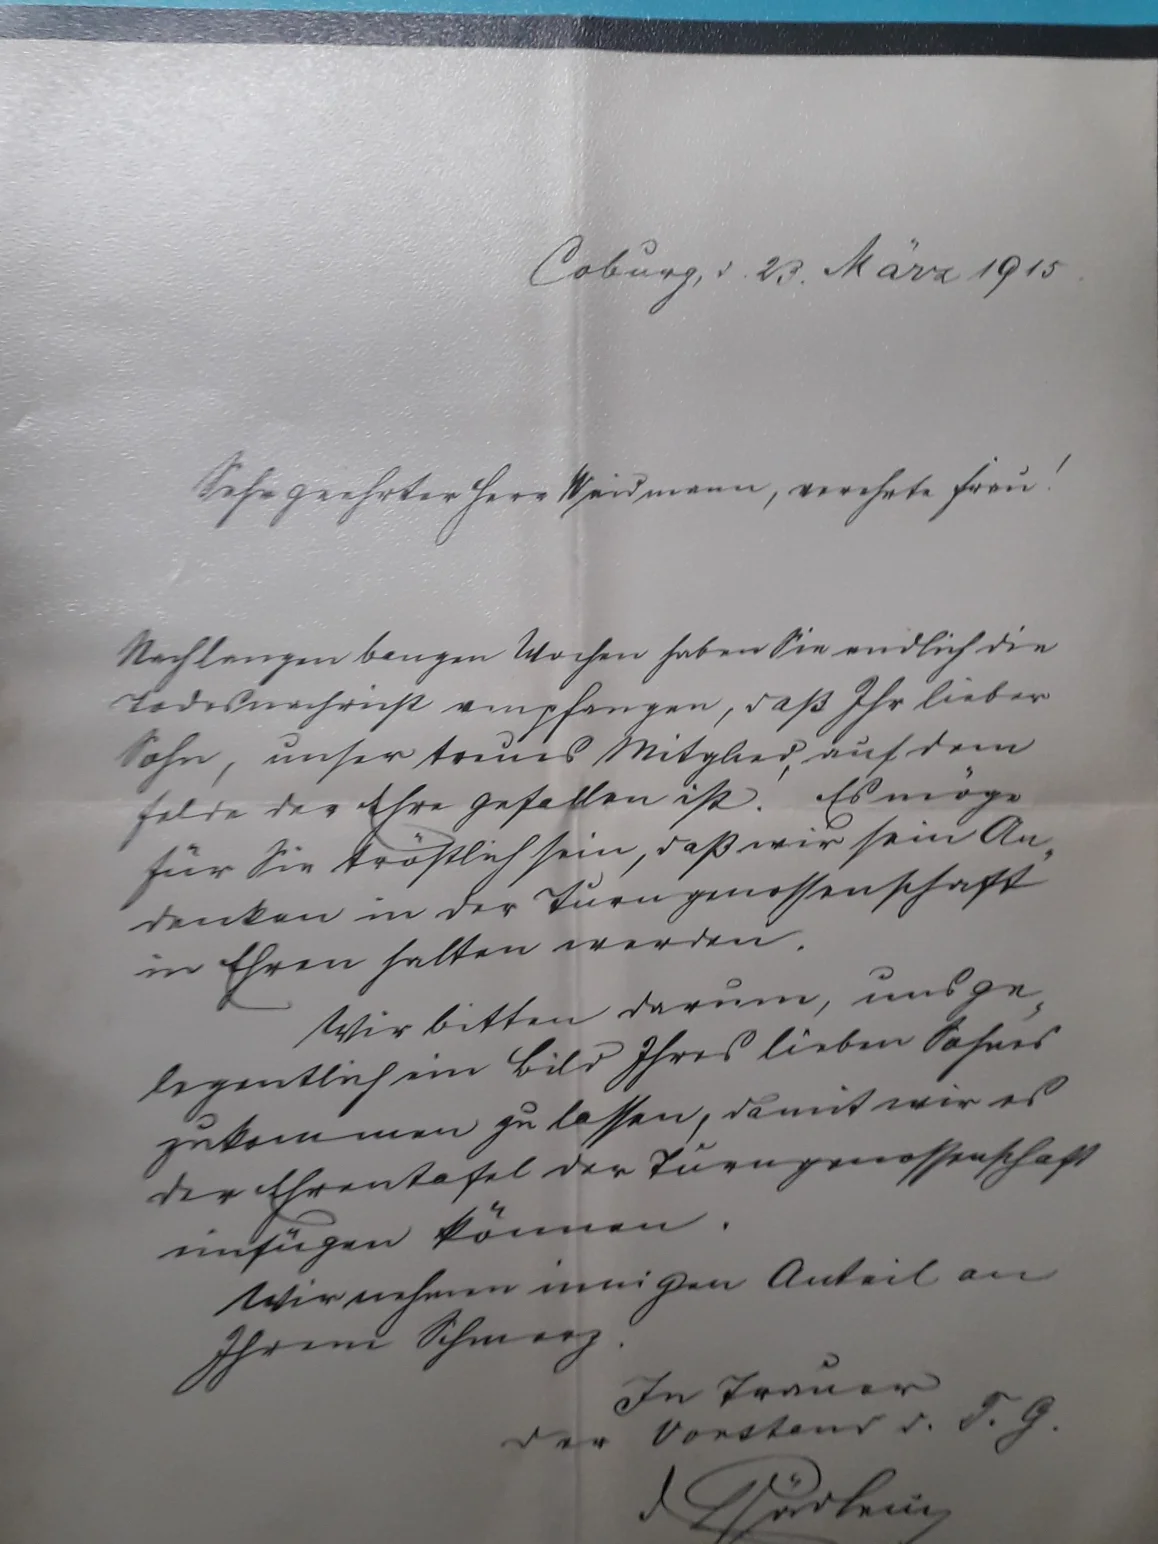 Coburg, d. 23. März 1915
Sehr geehrter Herr Weidmann, verehrte Frau!
Nach langen bangen Wochen haben Sie endlich die
Todesnachricht empfangen, daß Ihr lieber
Sohn, unser treues Mitglied, auf dem
Felde der Ehre gefallen ist! Es möge
für Sie tröstlich sein, daß wir sein An-
denken in der Turngenossenschaft
in Ehren halten werden.
Wir bitten darum, uns ge-
legentlich ein Bild Ihres lieben Sohnes
zukommen zu lassen, damit wir es
der Ehrentafel der Turngenossenschaft
einfügen können.
Wir nehmen innigen Anteil an
Ihrem Schmerz.
In Trauer
der Vorstand d. T. G.